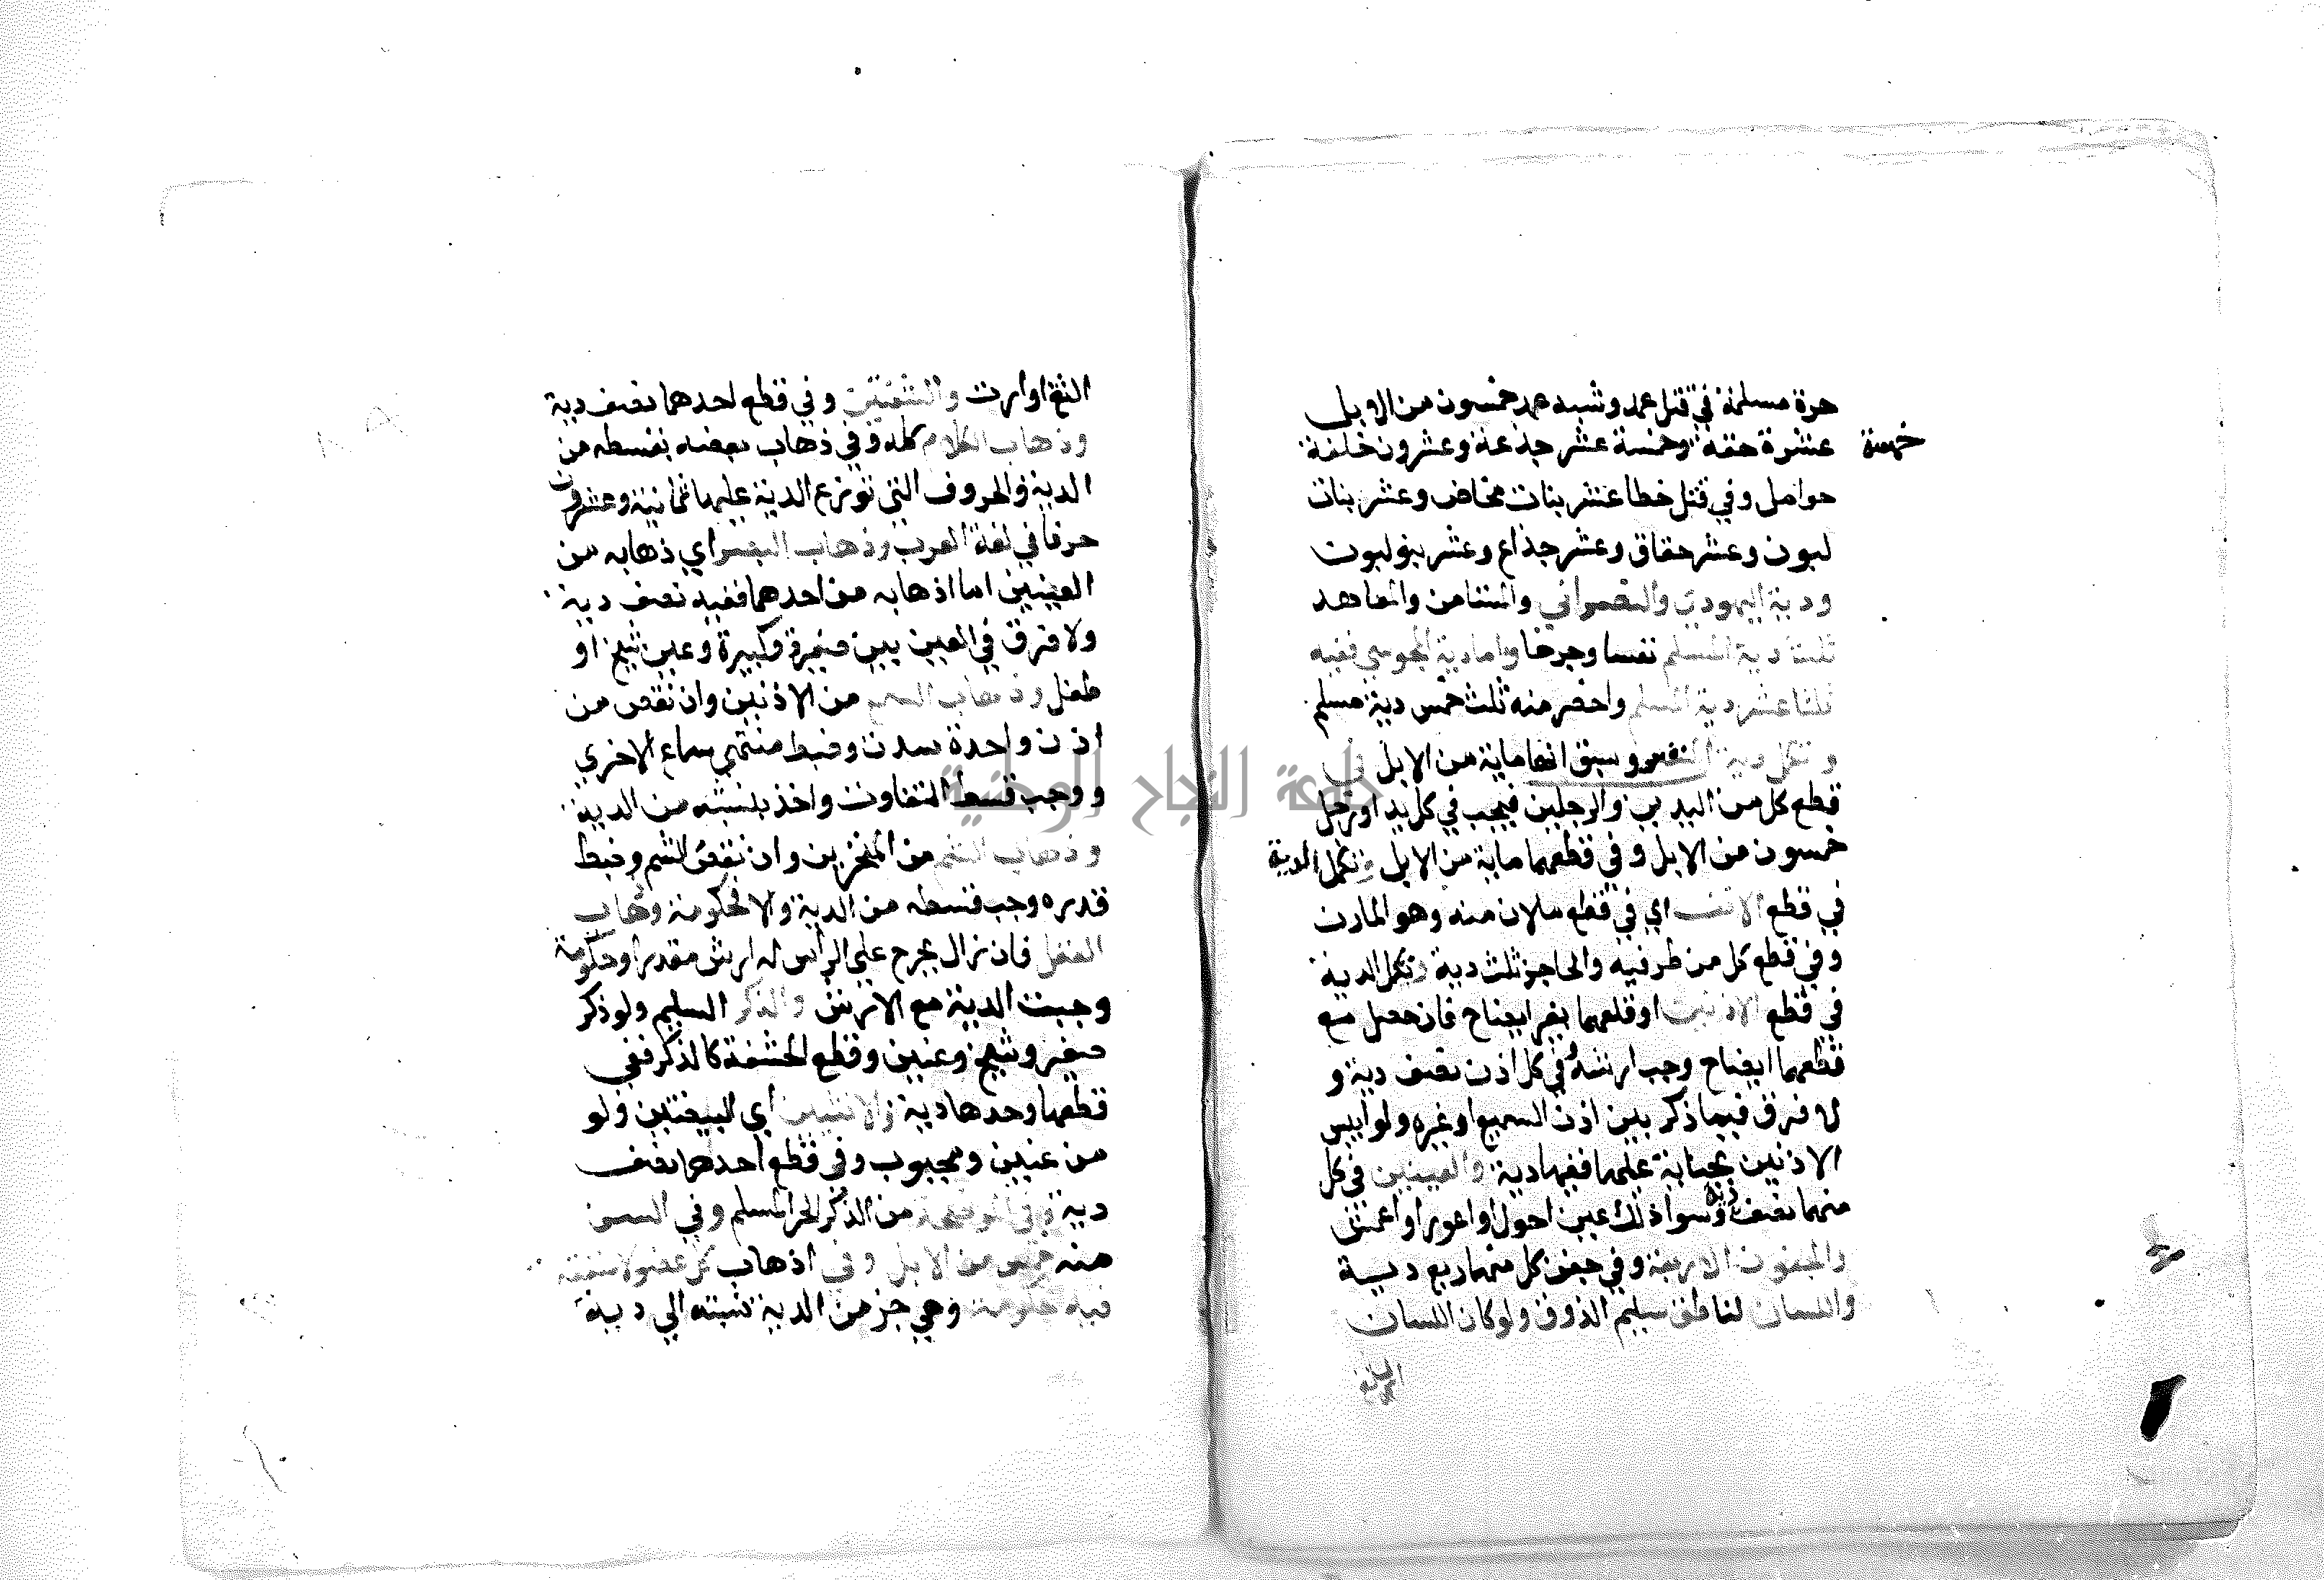 حرة مسلمة في قتل عمد وشبه عمد خمسون من الابل
خمسة
عشرة حقة وخمسة عشر جذعة وعشرون خلفة
حوامل وفي قتل خطا عشر بنات مخاض وعشر بنات
لبون وعشر حقاق وعشر جذاع وعشر بنو لبون
ودية اليهودي والنصراني والمستامن والمعاهد
ثلث دية المسلم نفسا وجرحا واما دية المجوسي ففيه
ثلثا عشر دية المسلم واخصر منه ثلث خمس دية مسلم
وتكمل دية النفس وسبق انها ماية من الابل في
قطع كل من اليدين والرجلين فيجب في كل يد او رجل
خمسون من الابل وفي قطعهما ماية من الابل وتكمل الدية
في قطع الانف اي في قطع ما لان منه وهو المارن
وفي قطع كل من طرفيه والحاجز ثلث دية وتكمل الدية
في قطع الاذنين او قلعهما بغير ايضاح فان حصل مع
قطعهما ايضاح وجب ارشه وفي كل اذن نصف دية و
لا فرق فيما ذكر بين اذن السميع او غيره ولو ايبس
الاذنين بجناية عليهما ففيها دية والعينين في كل
منهما نصف دية وسوا في ذلك عين احول او اعور او اعمش
والجفون الاربعة وفي جفن كل منهما ربع دية
واللسان لناطق سليم الذوق ولو كان اللسان
جامعة النجاح الوطنية
الثغ او ارت والشفتين وفي قطع احدهما نصف دية
وذهاب الكلام كله وفي ذهاب بعضه بقسطه من
الدية والحروف التي توزع الدية عليها ثمانية وعشرون
حرفا في لغة العرب وذهاب البصر اي ذهابه من
العينين اما اذهابه من احدهما ففيه نصف دية
ولا فرق في العين بين صغيرة وكبيرة وعين شيخ او
طفل وذهاب السمع من الاذنين وان نقص من
اذن واحدة سدت وضبط منتهي سماع الاخري
ووجب قسط التفاوت واخذ بنسبته من الدية
وذهاب الشم من المنخرين وان نقص الشم وضبط
قدره وجب قسطه من الدية والا فحكومة وذهاب
العقل فان زال بجرح علي الراس له ارش مقدر او حكومة
وجبت الدية مع الارش والذكر السليم ولو ذكر
صغير وشيخ وعنين وقطع الحشفة كالذكر ففي
قطعها وحدها دية والانثيين اي البيضتين ولو
من عنين ومجبوب وفي قطع احدهما نصف
دية وفي الموضحة من الذكر الحر المسلم وفي السن
منه خمس من الابل وفي اذهاب كل عضو لا منفعة
فيه حكومة وهي جز من الدية نسبته الي دية